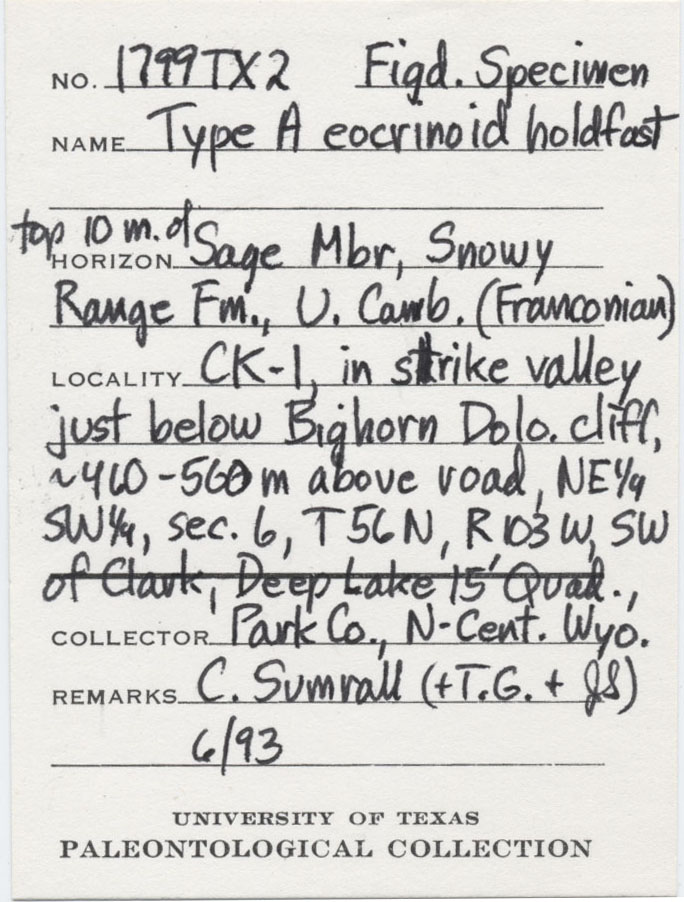 NO. 1799TX2 Figd. Specimen
NAME Type A eocrinoid holdfast
top 10 m. of
HORIZON Sage Mbr, Snowy
Range Fm., U. Camb. (Franconian)
LOCALITY CK-1, in strike valley
just below Bighorn Dolo. cliff,
~460-560 m above road, NE1/4
SW1/4, sec. 6, T56N, R103W, SW
of Clark, Deep Lake 15' Quad.,
COLLECTOR Park Co., N-Cent. Wyo.
REMARKS C. Sumrall (+T.G. + JS)
6/93
UNIVERSITY OF TEXAS
PALEONTOLOGICAL COLLECTION